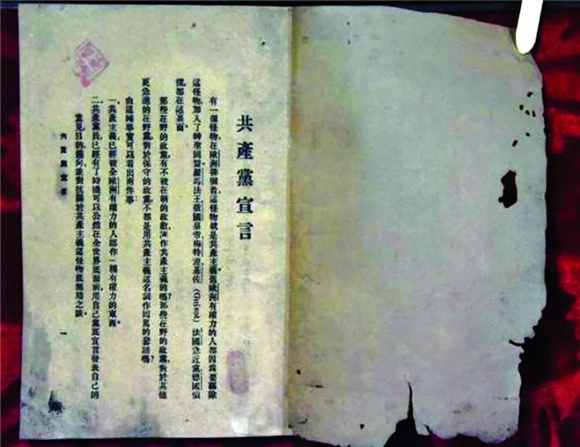 共產黨宣言
有一個怪物在歐洲徘徊着這怪物就是共產主義舊歐洲有權力的人都因為要驅除
這怪物加入了神聖同盟羅馬法王俄國皇帝梅特涅基佐(Guizot)法國急進黨德國偵
探都在這裏面
那些在野的政黨有不被在朝的政敵誣作共產主義的嗎?那些在野的政黨對於其他
更急進的在野黨對於保守的政黨不都是用共產主義這名詞作回罵的套語嗎?
由這種事實可以看出兩件事
一、共產主義已經被全歐洲有權力的人認作一種有權力的東西
二、共產黨員已經有了時機可以公然在全世界底面前用自己黨底宣言發表自己的
意見目的趨向並對抗關於共產主義這怪物底無稽之談
共產黨宣言
一